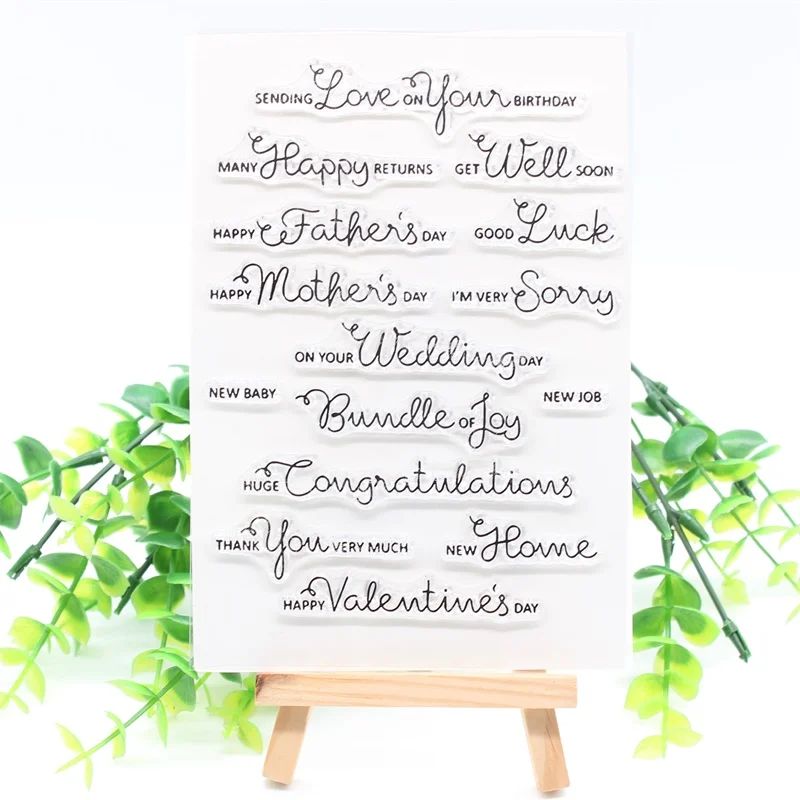 SENDING Love ON Your BIRTHDAY
MANY Happy RETURNS
GET Well SOON
HAPPY Father's DAY
GOOD Luck
HAPPY Mother's DAY
I'M VERY Sorry
ON YOUR Wedding DAY
NEW BABY
Bundle OF Joy
NEW JOB
HUGE Congratulations
THANK You VERY MUCH
NEW Home
HAPPY Valentine's DAY